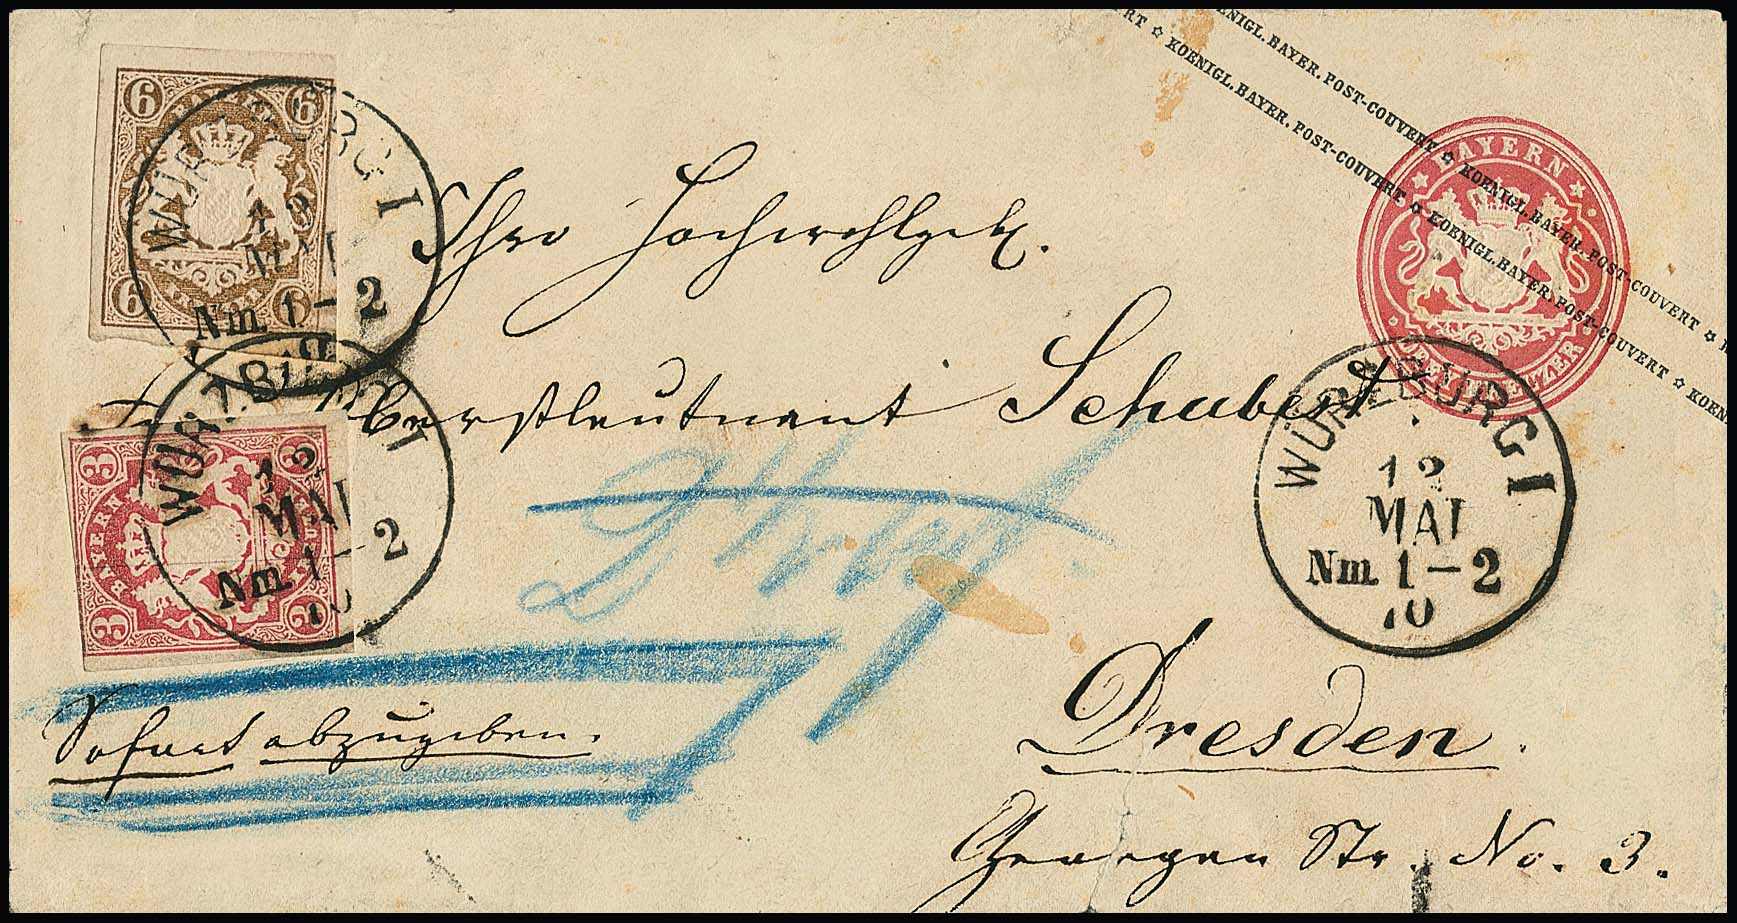 KOENIGL. BAYER. POST-COUVERT ☆ KOENIGL. BAYER. POST-COUVERT ☆
RT ☆ KOENIGL. BAYER. POST-COUVERT ☆ KOENIGL. BAYER. POST-COUVERT ☆ KOEN
BAYERN
DREI KREUZER
6 6
6 6
WÜRZBURG I
12
MAI
Nm. 1-2
Ihro Hochwohlgeb.
Frau Oberstleutnant Schubert
3 3
BAYERN
3 3
WÜRZBURG I
12
MAI
Nm. 1-2
70
WÜRZBURG I
12
MAI
Nm. 1-2
70
Sofort abzugeben.
Dresden.
Str. No. 3.